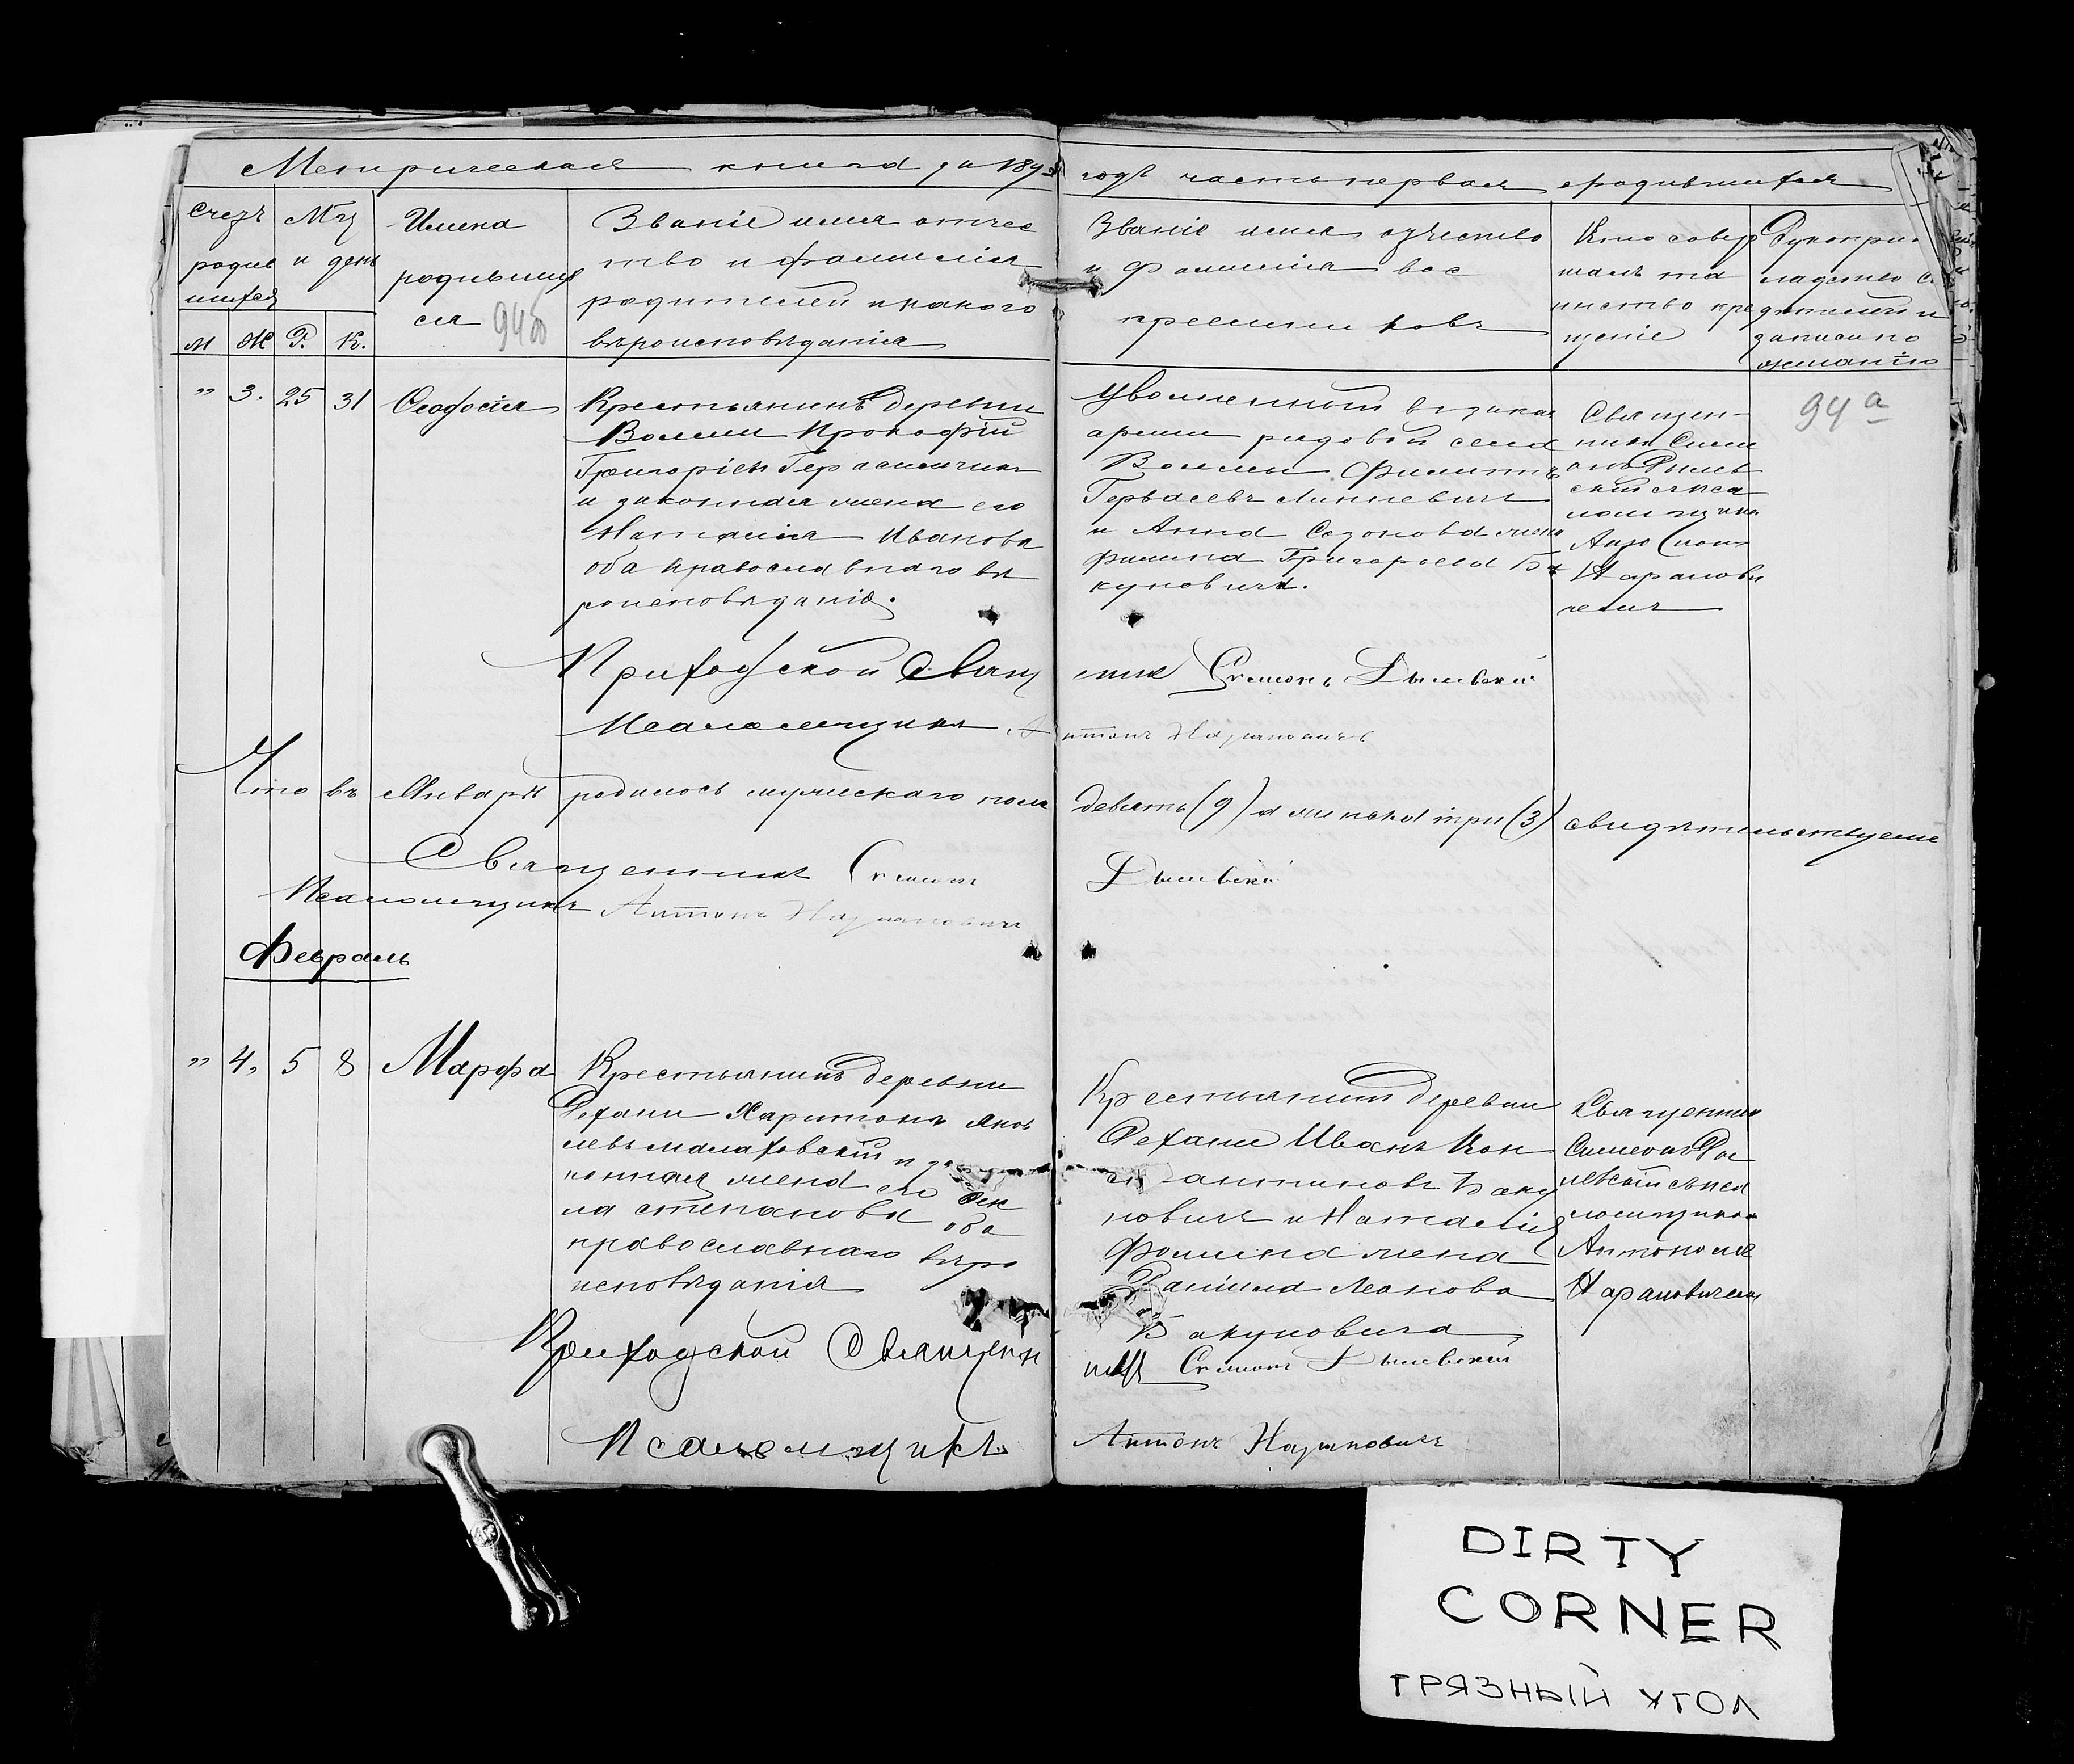 Метрическая книга за 189
годъ часть первая о родившихся
Счетъ родив шихся
Мцъ и день
Имена родивших ся
94об
Званіе имя отчес
тво и фамилія
родителей и какого
вѣроисповѣданія
Званіе имя отчество
и фамилія вос
пріемни ковъ
Кто совер
шалъ та
инство кре
щенія
Рукопри
ладство
дителей и
записи по
желанію
М Ж Р. К.
" 3. 25 31 Феодосія
Крестьянинъ деревни
Волми Прокофій
Григоріевъ Герасимчикъ
и законная жена его
Наталія Иванова
оба православнаго вѣ
роисповѣданія.
Уволенный въ запас
арміи рядовой села
Волмы Филиппъ
Гервасевъ Линкевичъ
и Анна Созонова жена
Фомина Григорьева Ба
куновича.
Священ-
никъ Симе
онъ Дылев
скій съ пса
ломщико
Анто
Нарановы
чемъ
94а
Приходской Свящ
енникъ Симеонъ Дылевскій
Псаломщикъ Антонъ Нарановичъ
Что въ Январѣ родилось мужскаго пола
девять (9) а женскаго три (3) свидѣтельствуемъ
Священникъ Симеонъ
Дылевскій
Псаломщикъ Антонъ Нарановичъ
Февраль
" 4. 5 8 Марфа
Крестьянинъ деревни
Рехани Харитонъ Яков
левъ Малаховскій и за
конная жена его Фек
ла Степанова оба
православнаго вѣро
исповѣданія
Крестьянинъ деревни
Рехани Иванъ Кон
стантиновъ Баку
новичъ и Наталія
Фомина жена
Даніила Леонова
Бакуновича
Священник
Симеонъ Ды
левскій съ пса
ломщиком
Антономъ
Нарановичем
Приходской Священ
никъ Симеонъ Дылевскій
Псаломщикъ
Антонъ Нарановичъ
DIRTY
CORNER
ГРЯЗНЫЙ УГОЛ